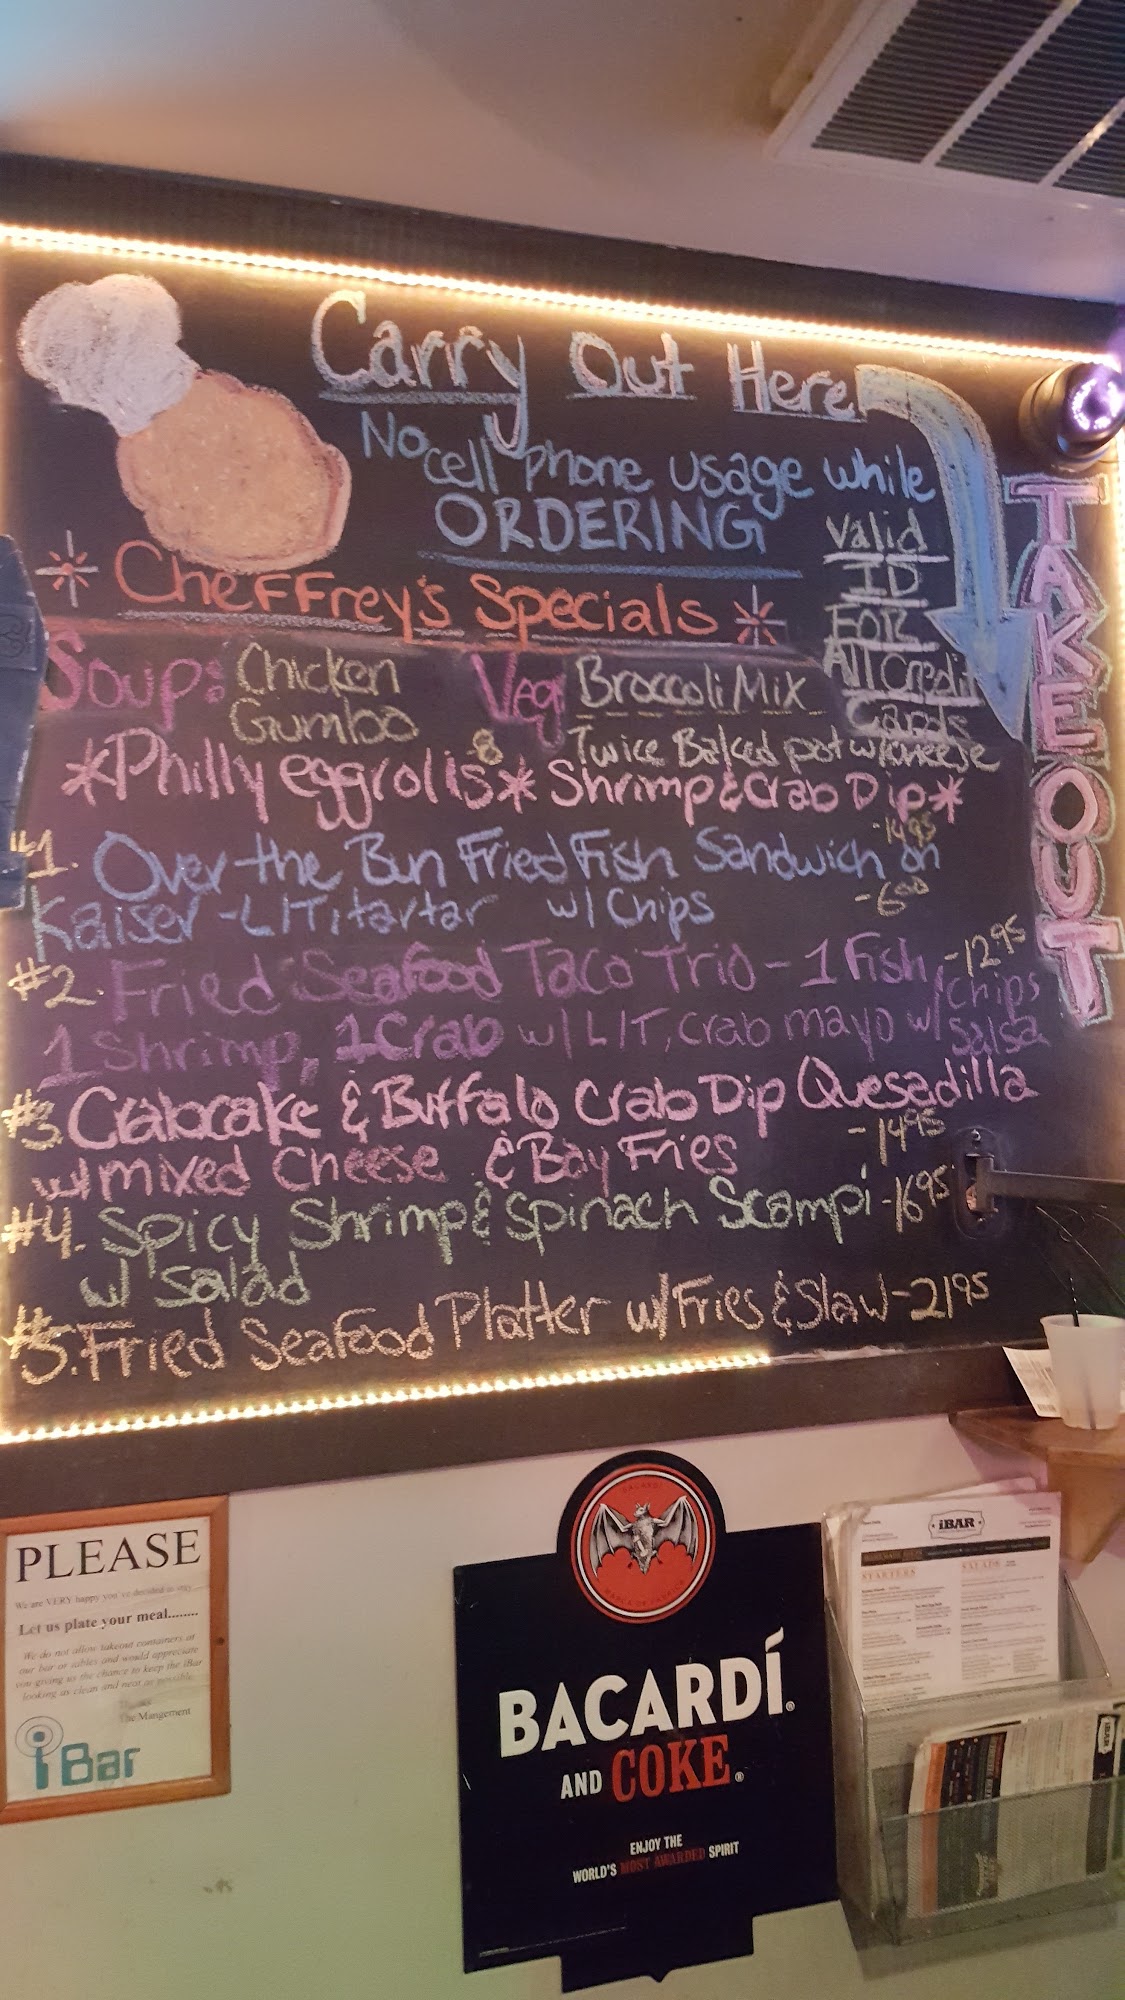 Carry Out Here
No cell phone usage while
ORDERING
Valid
ID
FOR
All Credit
Cards
TAKEOUT
Cheffrey's Specials
Soup: Chicken
Gumbo
Veg Broccoli Mix
Twice Baked pot w/cheese
*Philly eggrolls* 8 Shrimp & Crab Dip*
-14.95
#1. Over the Bun Fried Fish Sandwich on
Kaiser -L/T, tartar w/ Chips -6.00
#2. Fried Seafood Taco Trio - 1 Fish, -12.95
1 Shrimp, 1 Crab w/ L/T, crab mayo w/ chips
salsa
#3. Crabcake & Buffalo Crab Dip Quesadilla
w/ mixed Cheese & Bay Fries -14.95
#4. Spicy Shrimp & Spinach Scampi -16.95
w/ Salad
#5. Fried Seafood Platter w/ Fries & Slaw -21.95
PLEASE
We are VERY happy you've decided to stay
Let us plate your meal........
We do not allow takeout containers at
our bar or tables and would appreciate
you giving us the chance to keep the iBar
looking as clean and neat as possible.
Thanks
The Mangement
iBar
BACARDÍ
AND COKE
ENJOY THE
WORLD'S MOST AWARDED SPIRIT
iBAR
STARTERS
SALADS